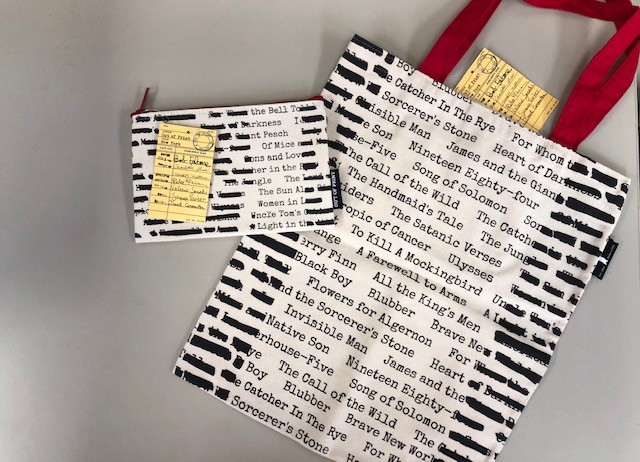 Whom the Bell Tolls
of Darkness
Giant Peach
Of Mice a
Sons and Love
Catcher in the R
The Jungle The
The Sun Al
Women in L
Uncle Tom's C
Light in th
Out of Print
New York
Boy Blubbe
e Catcher In The Rye
Sorcerer's Stone For Whom t
Invisible Man Heart of Dar
ve Son James and the Giant
e-Five Nineteen Eighty-Four
The Call of the Wild Song of Solomon
iders The Handmaid's Tale The Catch
opic of Cancer The Satanic Verses The Jung
To Kill A Mockingbird Ulysses
erry Finn A Farewell to Arms
Black Boy All the King's Men
Flowers for Algernon Blubber Brave New
nd the Sorcerer's Stone
Invisible Man For Wh
Native Son James and the Heart of
erhouse-Five Nineteen Eighty-
ye The Call of the Wild Song of Solomon
Boy Blubber Brave New Wor
e Catcher In The Rye
Sorcerer's Stone For Wh